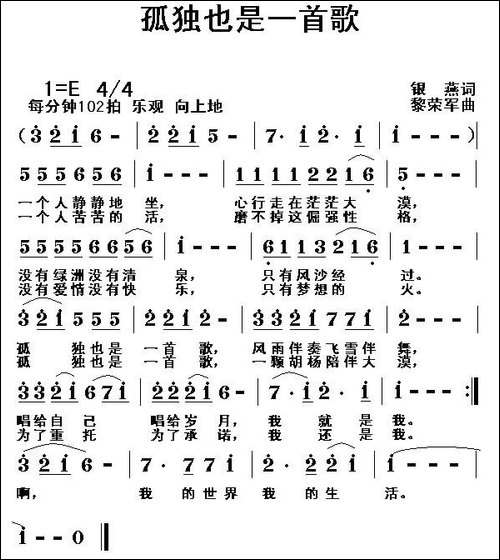 孤独也是一首歌
1=E 4/4
银燕词
每分钟102拍 乐观 向上地
黎荣军曲
(3̇ 2̇ i 6 - | 2̇ 2̇ i 5 - | 7· i 2̇· i | i - - -)
5 5 5 6 5 6 5 | i - - - | i i i i 2̇ 2̇ i 6 | 5 - - -
一个人静静地 坐, 心行走在茫茫大 漠,
一个人苦苦的 活, 磨不掉这倔强性 格,
5 5 5 5 6 6 5 6 | i - - - | 6 i i 3̇ 2̇ i 6 | i - - -
没有绿洲没有清 泉, 只有风沙经 过。
没有爱情没有快 乐, 只有梦想的 火。
3̇ 2̇ i 5 5 5 | 2̇ 2̇ i 2̇ - | 3̇ 3̇ 2̇ i 7 7 i | 2̇ - - -
孤 独也是 一首 歌, 风雨伴奏飞雪伴 舞,
孤 独也是 一首 歌, 一颗胡杨陪伴大 漠,
3̇ 3̇ 2̇ i 6 7 i | 2̇ 2̇ i 2̇ - | 7· i 2̇· i | i - - :‖
唱给自 己 唱给岁 月, 我 就 是 我。
为了重 托 为了承 诺, 我 还 是 我。
3̇ 2̇ i 6 - | 7· 7 7 i | 2̇· 2̇ 2̇ i | i - - -
啊, 我 的世界 我 的生 活。
i - - 0 ‖